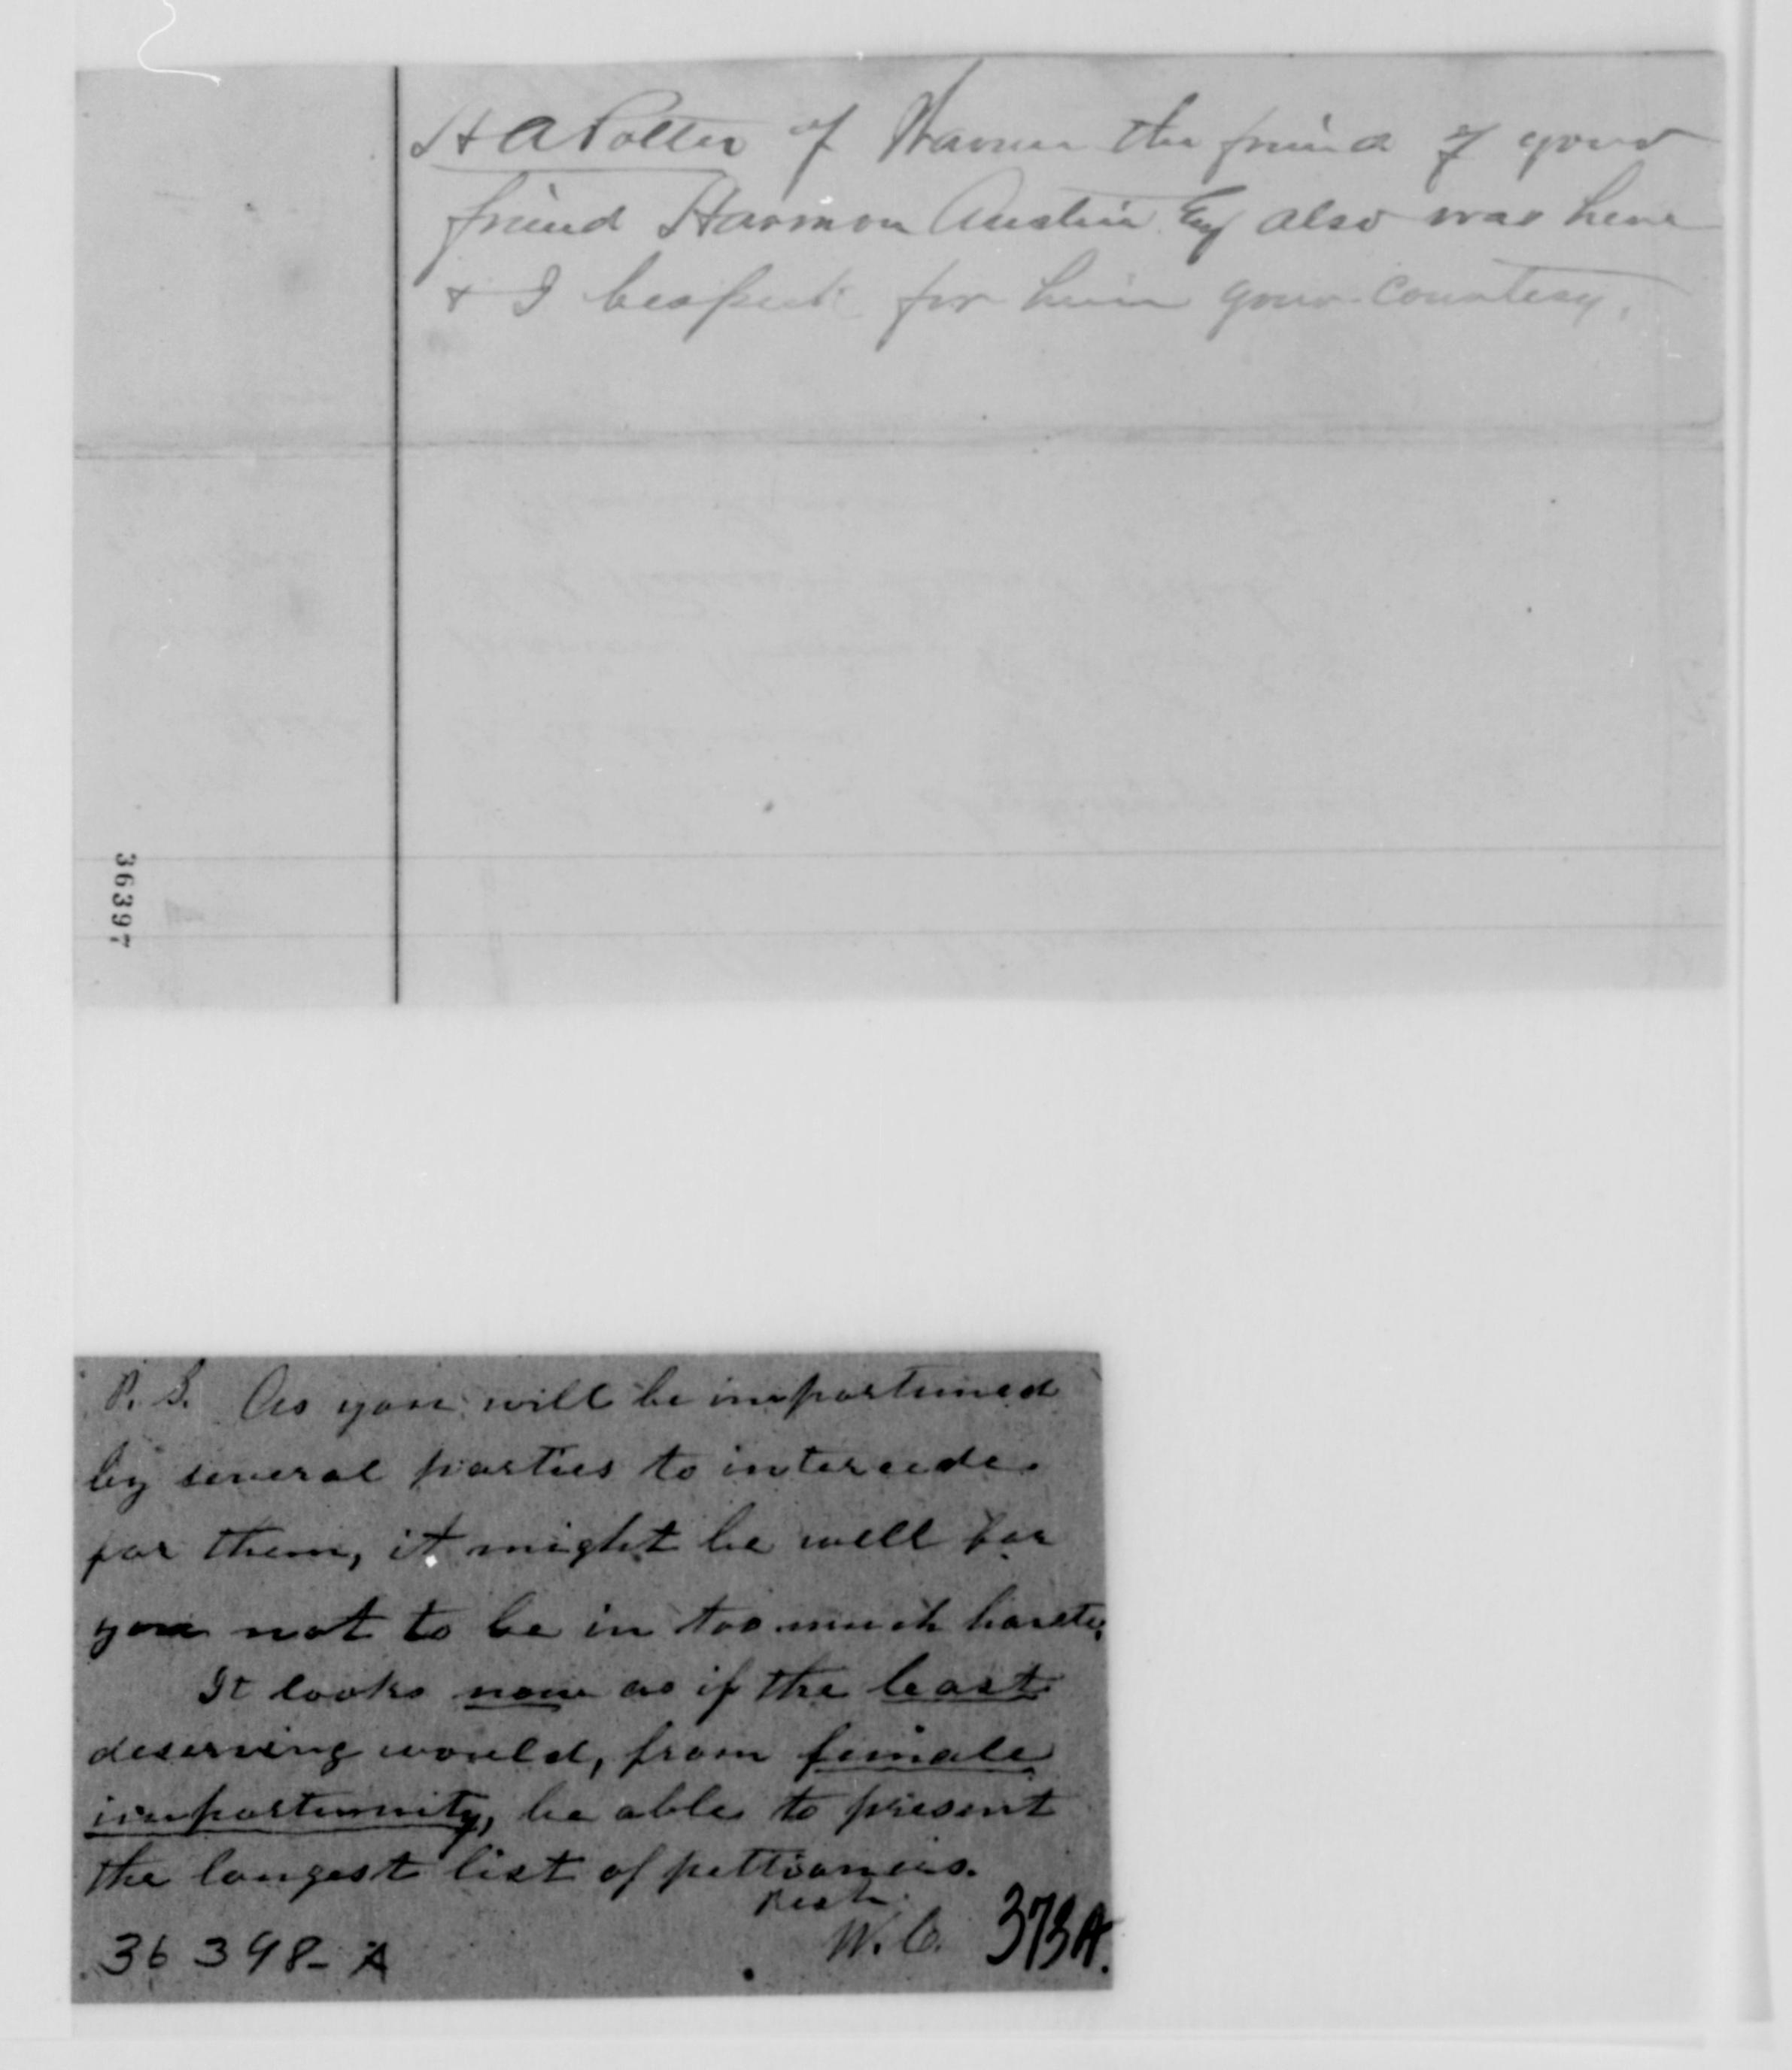 H A Potter of Warren the friend of your
friend Harmon Austin Esq also was here
& I bespeak for him your courtesy.
36397
P. S. As you will be importuned
by several parties to intercede
for them, it might be well for
you not to be in too much haste.
It looks now as if the least
deserving would, from female
importunity, be able to present
the longest list of petitioners.
Resp.
W. C.
373A.
36 398-A